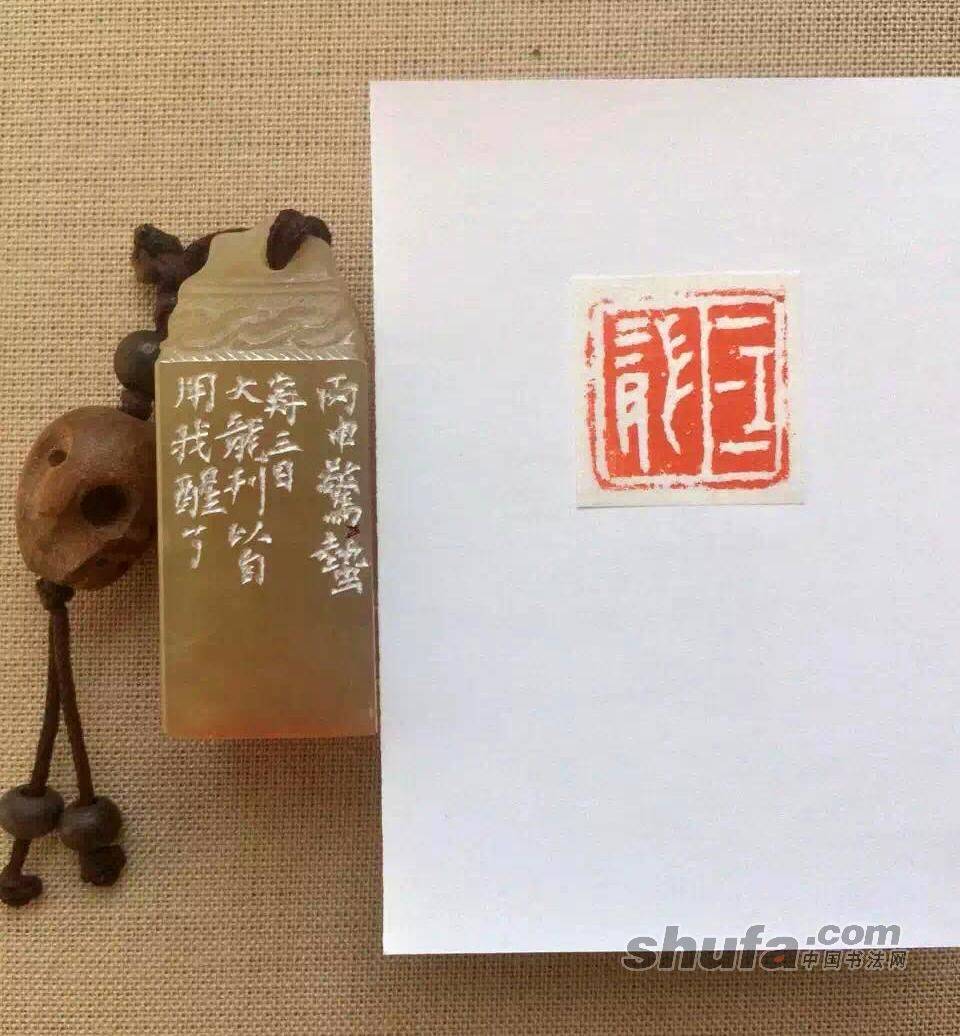 丙申驚蟄
三日
大龍以自
用我醒了
龍
shufa.com
中国书法网